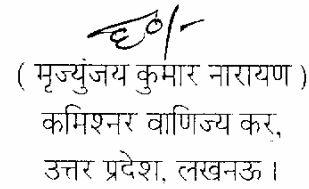 ह०/-
( मृज्युंजय कुमार नारायण )
कमिश्नर वाणिज्य कर,
उत्तर प्रदेश, लखनऊ ।